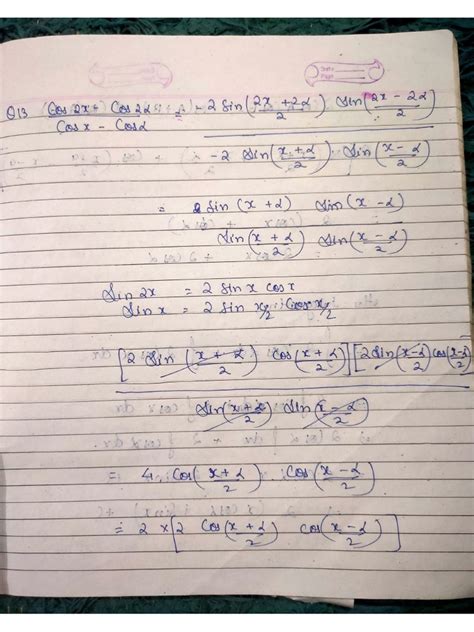 Q13 (Cos 2x - Cos 2α) / (Cos x - Cosα) = -2 Sin((2x + 2α)/2) Sin((2x - 2α)/2)
-2 Sin((x + α)/2) Sin((x - α)/2)
= 2 Sin (x + α) Sin (x - α)
Sin((x + α)/2) Sin((x - α)/2)
Sin 2x = 2 Sin x cos x
Sin x = 2 Sin x/2 Cos x/2
[2 Sin((x + α)/2) Cos((x + α)/2)][2 Sin((x - α)/2) Cos((x - α)/2)]
Sin((x + α)/2) Sin((x - α)/2)
= 4 Cos((x + α)/2) Cos((x - α)/2)
= 2 × [2 Cos((x + α)/2) Cos((x - α)/2)]